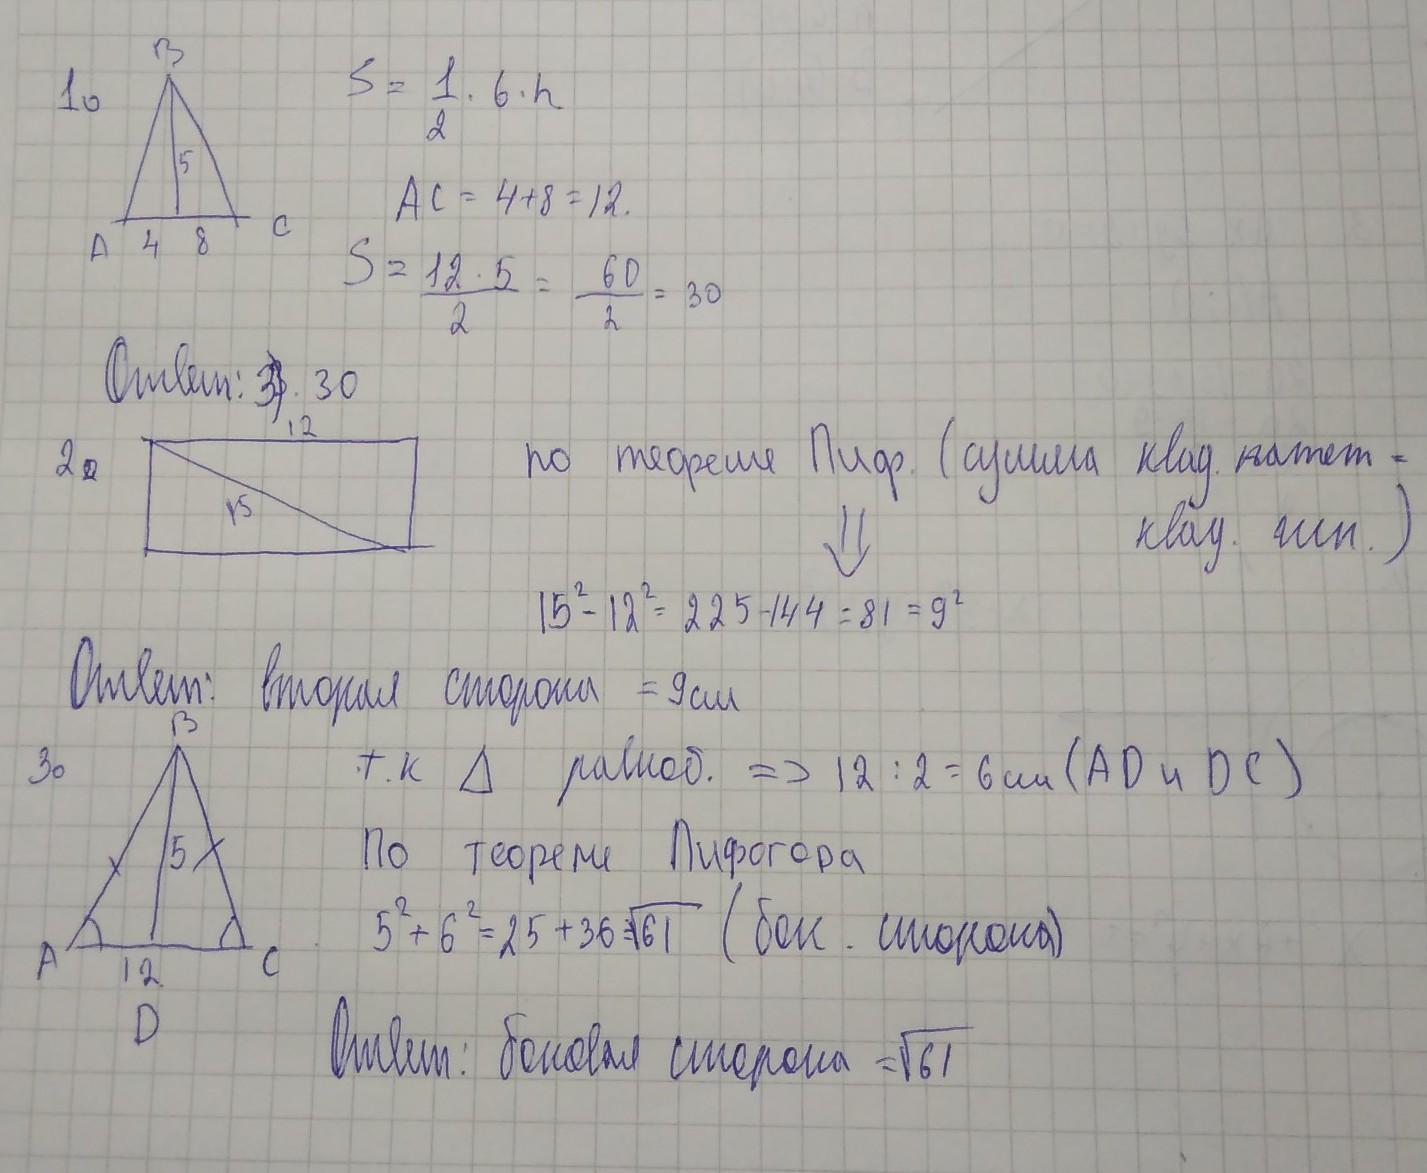 B
1.
S = 1/2 · 6 · h
5
AC = 4+8=12.
A 4 8 C
S = 12 · 5 / 2 = 60 / 2 = 30
Ответ: 30
12
2.
по теореме Пиф. (сумма квад. катет =
квад. гип.)
15
15² - 12² = 225 - 144 = 81 = 9²
Ответ: вторая сторона = 9см
B
3.
т.к △ равноб. => 12 : 2 = 6 см (AD и DC)
5
По теореме Пифогора
5² + 6² = 25 + 36 = √61 (бок. сторона)
A 12 C
D
Ответ: боковая сторона = √61